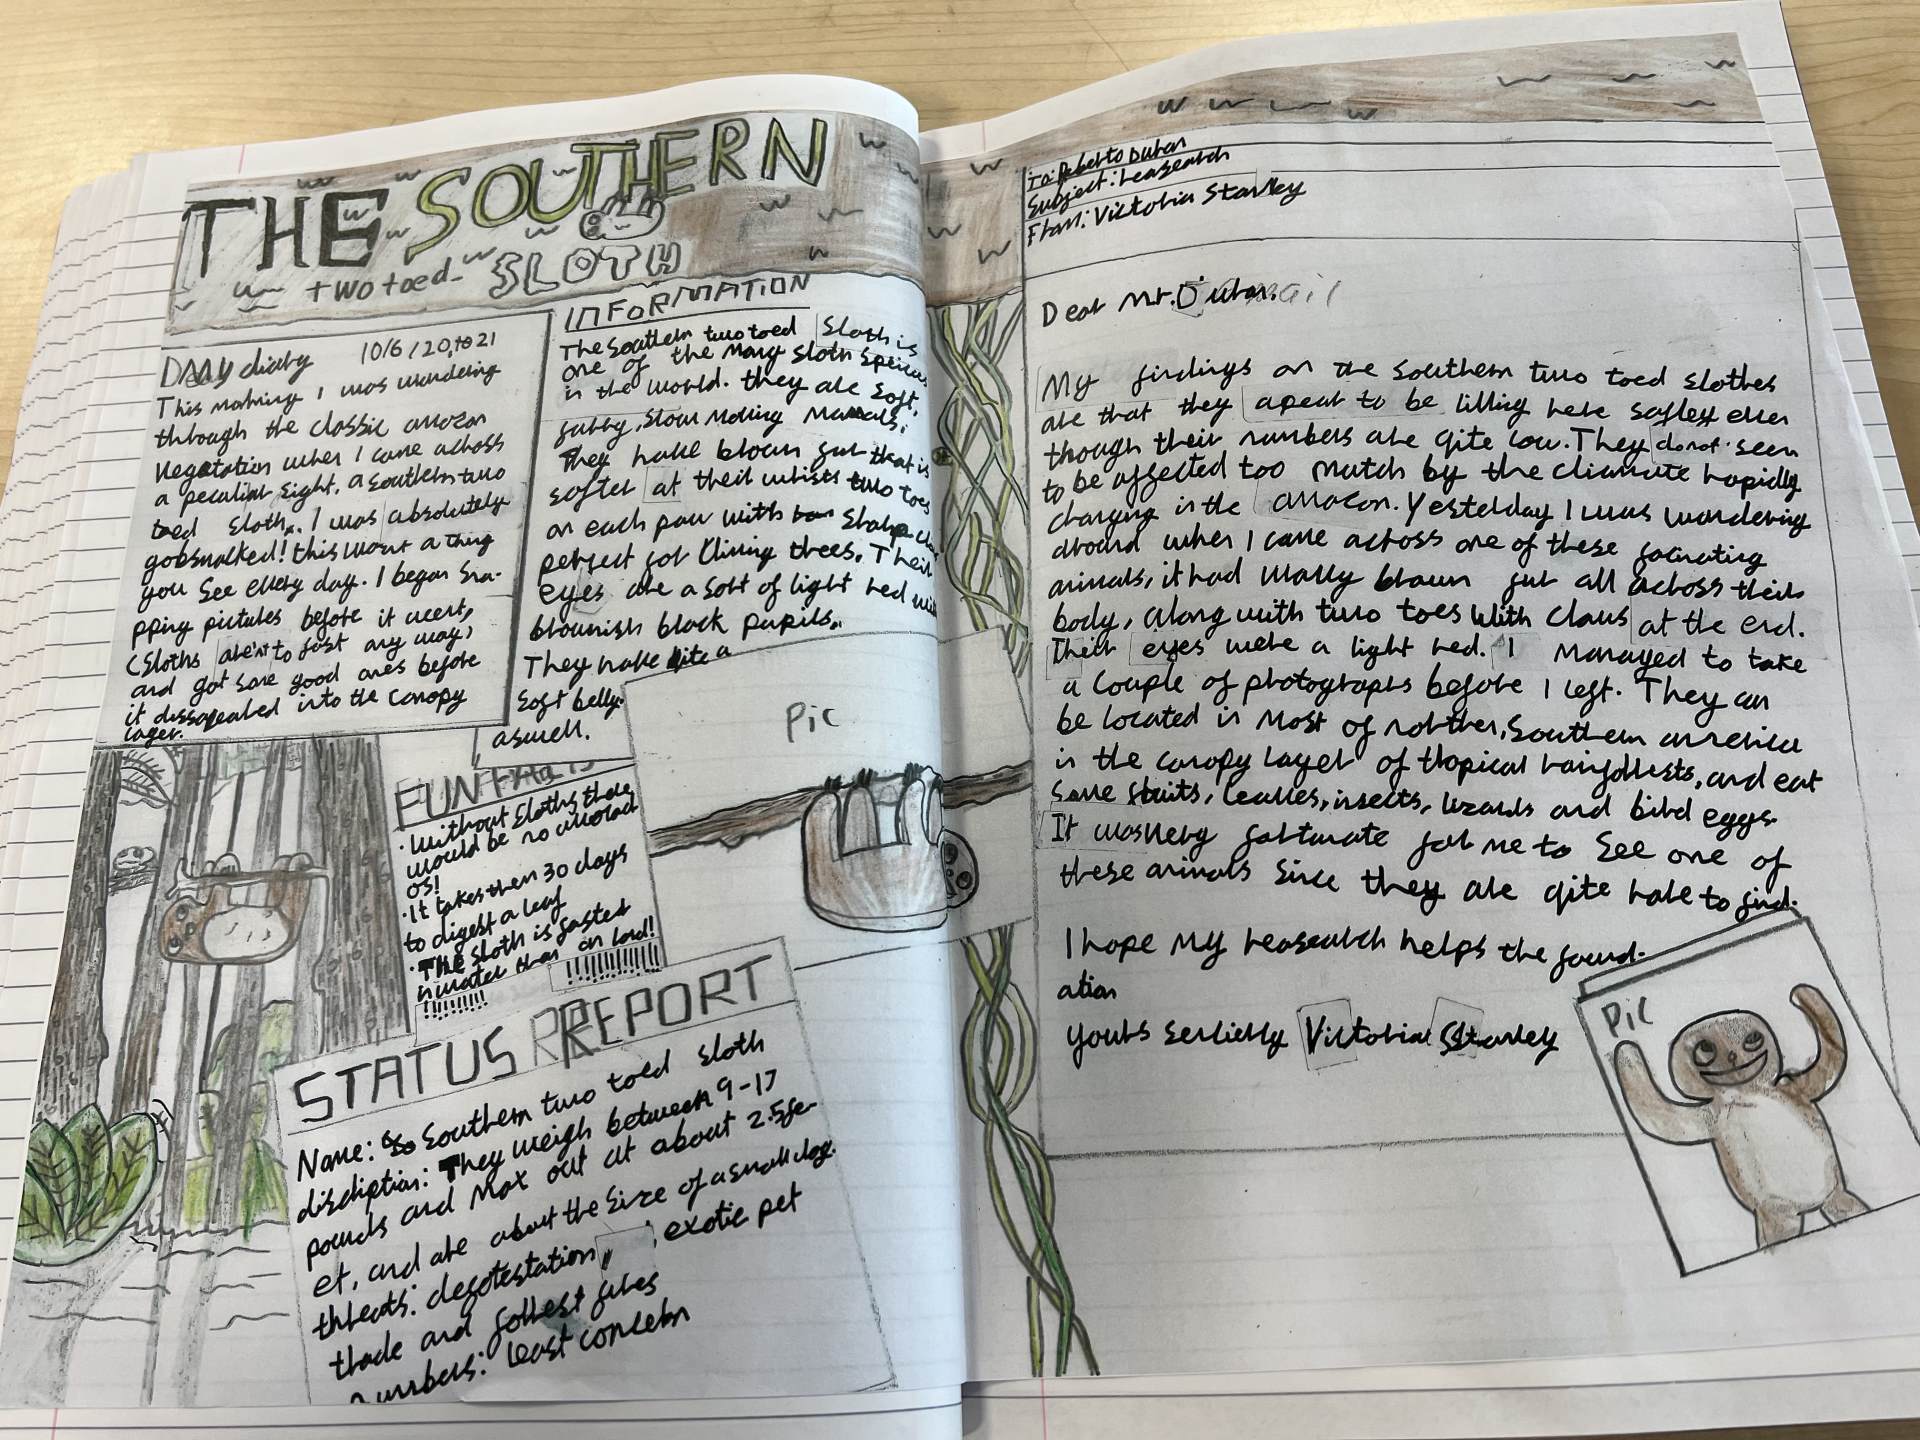 THE SOUTHERN
two toed SLOTH
diary 10/6/20
This morning I was wandering
through the classic amozon
vegatation when I came across
a peculiar sight, a southern two
toed sloth. I was absolutely
gobsmacked! this wasnt a thing
you see every day. I began sna-
pping pictures before it went,
(sloths aren't to fast any way)
and got some good ones before
it dissapeared into the canopy
layer.
INFORMATION
The southern two toed sloth is
one of the many sloth species
in the world. they are soft,
furry, slow moving
They have brown fur that is
softer at their wrists two toes
on each paw with sharp
perfect for climing trees. Their
eyes are a sort of light red with
brownish black pupils.
They have a
soft belly
aswell.
Pic
FUN FACTS
• Without sloths there
would be no avocad
os!
• It takes them 30 days
to digest a leaf
• THE sloth is fasted
in water than on land!
!!!!!!!!! !!!!!!!!!!!!
STATUS REPORT
Name: Southern two toed sloth
discription: They weigh between 9-17
pounds and max out at about 2.5fe-
et, and are about the size of a small dog.
threats: deforestation, exotic pet
trade and forrest fires
numbers: least concern
To: Roberto Duran
Subject: reasearch
From: Victoria Stanley
Dear Mr. Duran
My findings on the southern two toed slothes
are that they apear to be living here safley even
though their numbers are qite low. They do not seem
to be affected too mutch by the climate rapidly
changing in the amazon. Yesterday I was wandering
around when I came across one of these facinating
animals, it had brown fur all across their
body, along with two toes with claws at the end.
Their eyes were a light red. I managed to take
a couple of photographs before I left. They can
be located in most of northen, southern america
in the canopy layer of tropical rainforrests, and eat
some fruits, leaves, insects, lizards and bird eggs.
It was very fortunate for me to see one of
these animals since they are qite rare to find.
I hope my reasearch helps the found-
ation
Yours Victoria Stanley
Pic